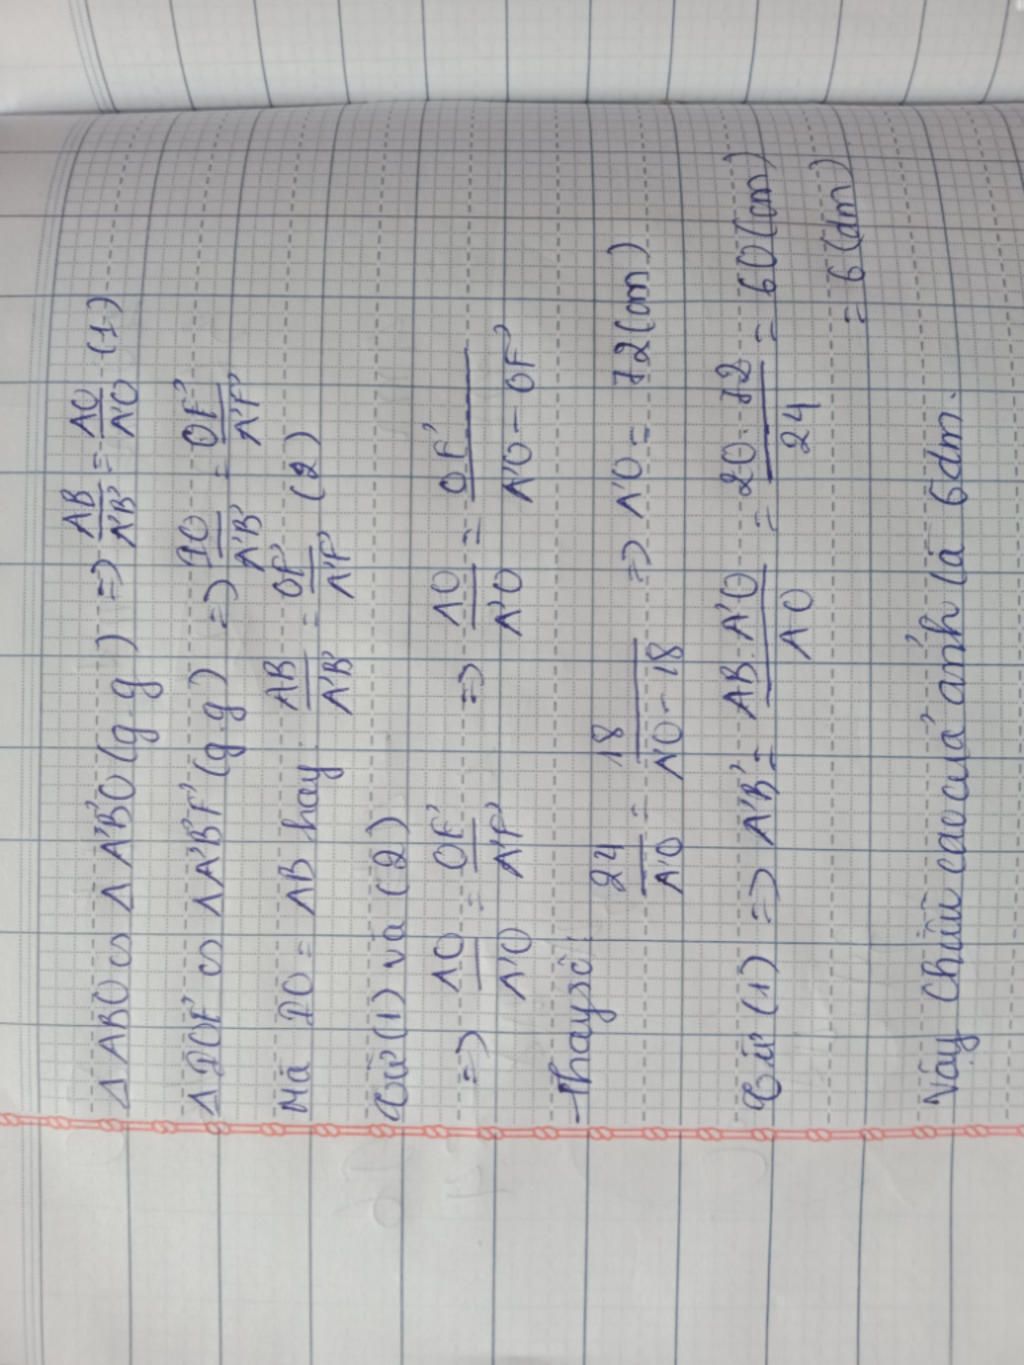 Δ ABO ∽ Δ A'B'O (g.g) => AB/A'B' = AO/A'O (1)
Δ IOF' ∽ Δ A'B'F' (g.g) => IO/A'B' = OF'/A'F'
Mà IO = AB hay AB/A'B' = OF'/A'F' (2)
Từ (1) và (2)
=> AO/A'O = OF'/A'F' => AO/A'O = OF'/A'O - OF'
Thay số: 24/A'O = 18/A'O - 18 => A'O = 72 (cm)
Từ (1) => A'B' = AB.A'O/AO = 20.72/24 = 60 (cm)
= 6 (dm)
Vậy chiều cao của ảnh là 6dm.